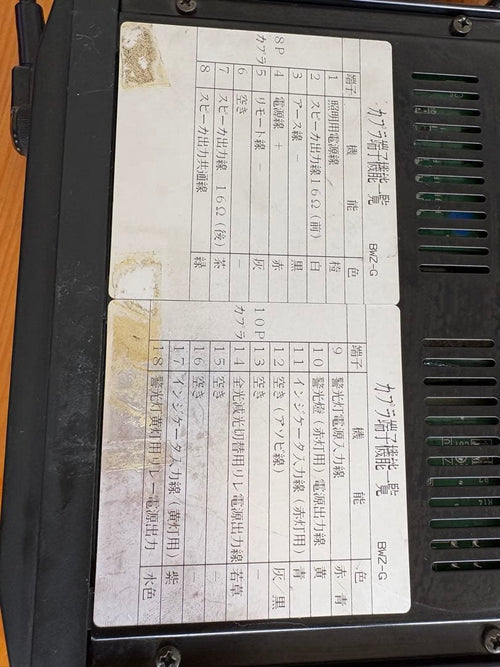 カプラ端子機能一覧 BWZ-G
端子 機 能 色
1 照明用電源線 橙
2 スピーカ出力線16Ω(前) 白
3 アース線 － 黒
8P 4 電源線 ＋ 赤
カプラ 5 リモート線 － 灰
6 空き －
7 スピーカ出力線 16Ω(後) 茶
8 スピーカ出力共通線 緑
カプラ端子機能一覧 BWZ-G
端子 機 能 色
9 警光灯電源入力線 赤 青
10 警光燈(赤灯用)電源出力線 黄
11 インジケータ入力線(赤灯用) 青
12 空き(アンピ線) 灰/黒
10P 13 空き －
カプラ 14 全光減光切替用リレー電源出力線 若草
15 空き －
16 空き －
17 インジケータ入力線(黄灯用) 紫
18 警光灯黄灯用リレー電源出力 水色